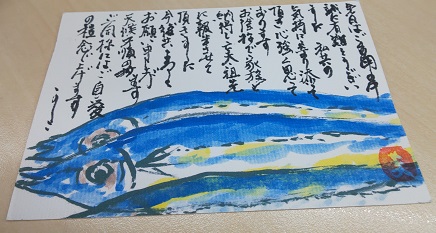 今日はご多用中
誠に有難うござい
ました 私共の
気持に寄り添って
頂き心強く思って
おります
お陰様で家族と
納得して
に報告させて
頂きました
今後共よろしく
お願い申します
天候不順の
ご自愛
の程念じ上げます